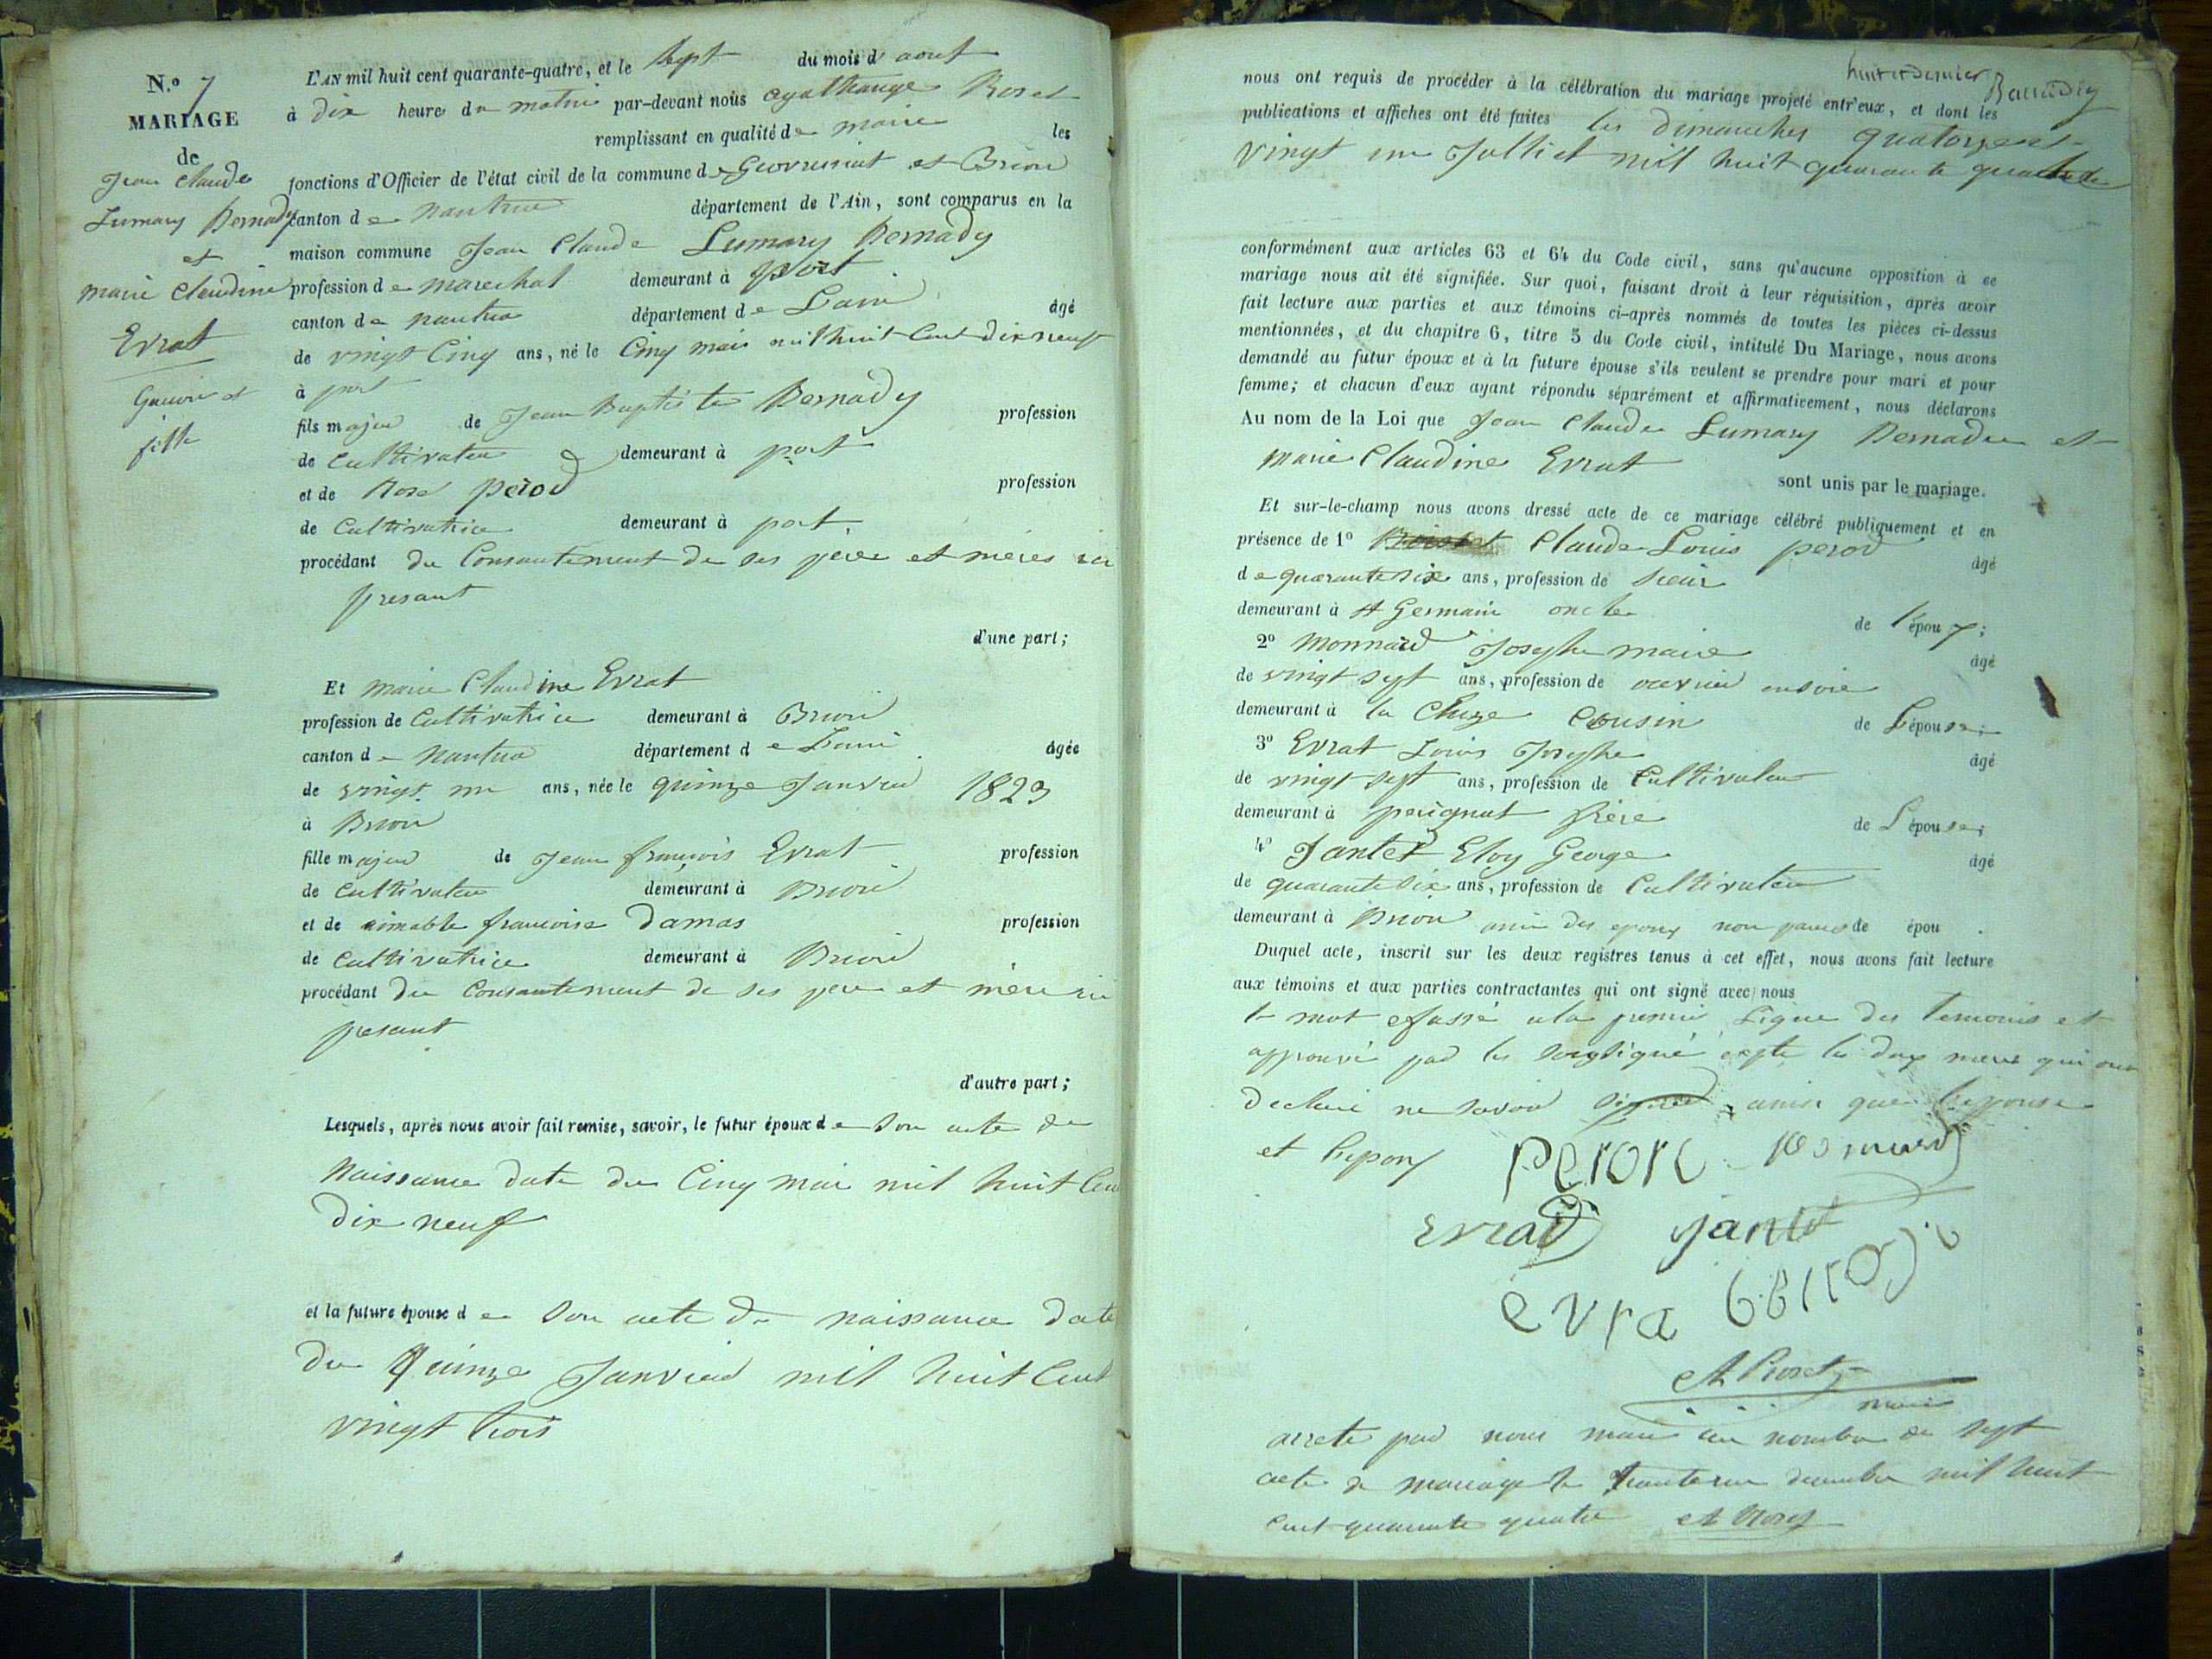 N.º 7
MARIAGE
de
Jean Claude
Lumary Bernady
et
marie Claudine
Evrat
Garcon et
fille
L'AN mil huit cent quarante-quatre, et le sept du mois d'aout
à dix heures du matin par-devant nous agathange Roset
remplissant en qualité de maire les
fonctions d'Officier de l'état civil de la commune de Geovressiat et Brion
canton de nantua département de l'Ain, sont comparus en la
maison commune Jean Claude Lumary Bernady
profession de marechal demeurant à port
canton de nantua département de Lain âgé
de vingt Cinq ans, né le Cinq mai mil huit Cent dix neuf
à port
fils majeur de Jean Baptiste Bernady profession
de Cultivateur demeurant à port
et de Rose perod profession
de Cultivatrice demeurant à port
procédant du Consantement de ses père et mères ici
presant
d'une part;
Et marie Claudine Evrat
profession de Cultivatrice demeurant à Brion
canton de Nantua département de Lain âgée
de vingt un ans, née le quinze Janvier 1823
à Brion
fille majeur de Jean françois Evrat profession
de Cultivateur demeurant à Brion
et de aimable francoise Damas profession
de Cultivatrice demeurant à Brion
procédant du Consantement de ses père et mère ici
presant
d'autre part;
Lesquels, après nous avoir fait remise, savoir, le futur époux de son acte de
Naissance date du Cinq mai mil huit Cent
dix neuf
et la future épouse de son acte de naissance date
du Quinze Janvier mil huit Cent
vingt trois
nous ont requis de procéder à la célébration du mariage projeté entr'eux, et dont les
publications et affiches ont été faites les dimanches quatorze et
vingt un Julliet mil huit quarante quatre
conformément aux articles 63 et 64 du Code civil, sans qu'aucune opposition à ce
mariage nous ait été signifiée. Sur quoi, faisant droit à leur réquisition, après avoir
fait lecture aux parties et aux témoins ci-après nommés de toutes les pièces ci-dessus
mentionnées, et du chapitre 6, titre 5 du Code civil, intitulé Du Mariage, nous avons
demandé au futur époux et à la future épouse s'ils veulent se prendre pour mari et pour
femme; et chacun d'eux ayant répondu séparément et affirmativement, nous déclarons
Au nom de la Loi que Jean Claude Lumary Bernady et
marie Claudine Evrat
sont unis par le mariage.
Et sur-le-champ nous avons dressé acte de ce mariage célébré publiquement et en
présence de 1º Claude Louis perod âgé
de quarante six ans, profession de
demeurant à St Germain oncle de l'époux;
2º Monnard Josephe marie âgé
de vingt sept ans, profession de ouvrier en soie
demeurant à la Cluze Cousin de Lépouse;
3º Evrat Louis Josephe âgé
de vingt sept ans, profession de Cultivateur
demeurant à peignat frère de Lépouse;
4º Jantet Eloy George âgé
de quarante six ans, profession de Cultivateur
demeurant à Brion ami des epoux non parent de épou .
Duquel acte, inscrit sur les deux registres tenus à cet effet, nous avons fait lecture
aux témoins et aux parties contractantes qui ont signé avec nous
le mot efassé a la premie Ligne des temoins et
approuvé par les sousigné les deux mere qui ont
declaré ne savoir signer ainsi que lepouse
et lepoux
evrad Jantet
evra
At Roset
maire
arreté par nous maire au nombre de sept
acte de mariage le trante un decembre mil huit
cent quarante quatre At Roset